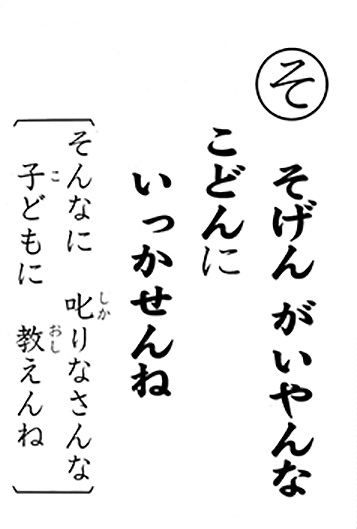 そ
そげん がいやんな
こどんに
いっかせんね
そんなに 叱りなさんな
しか
子どもに 教えんね
こ おし